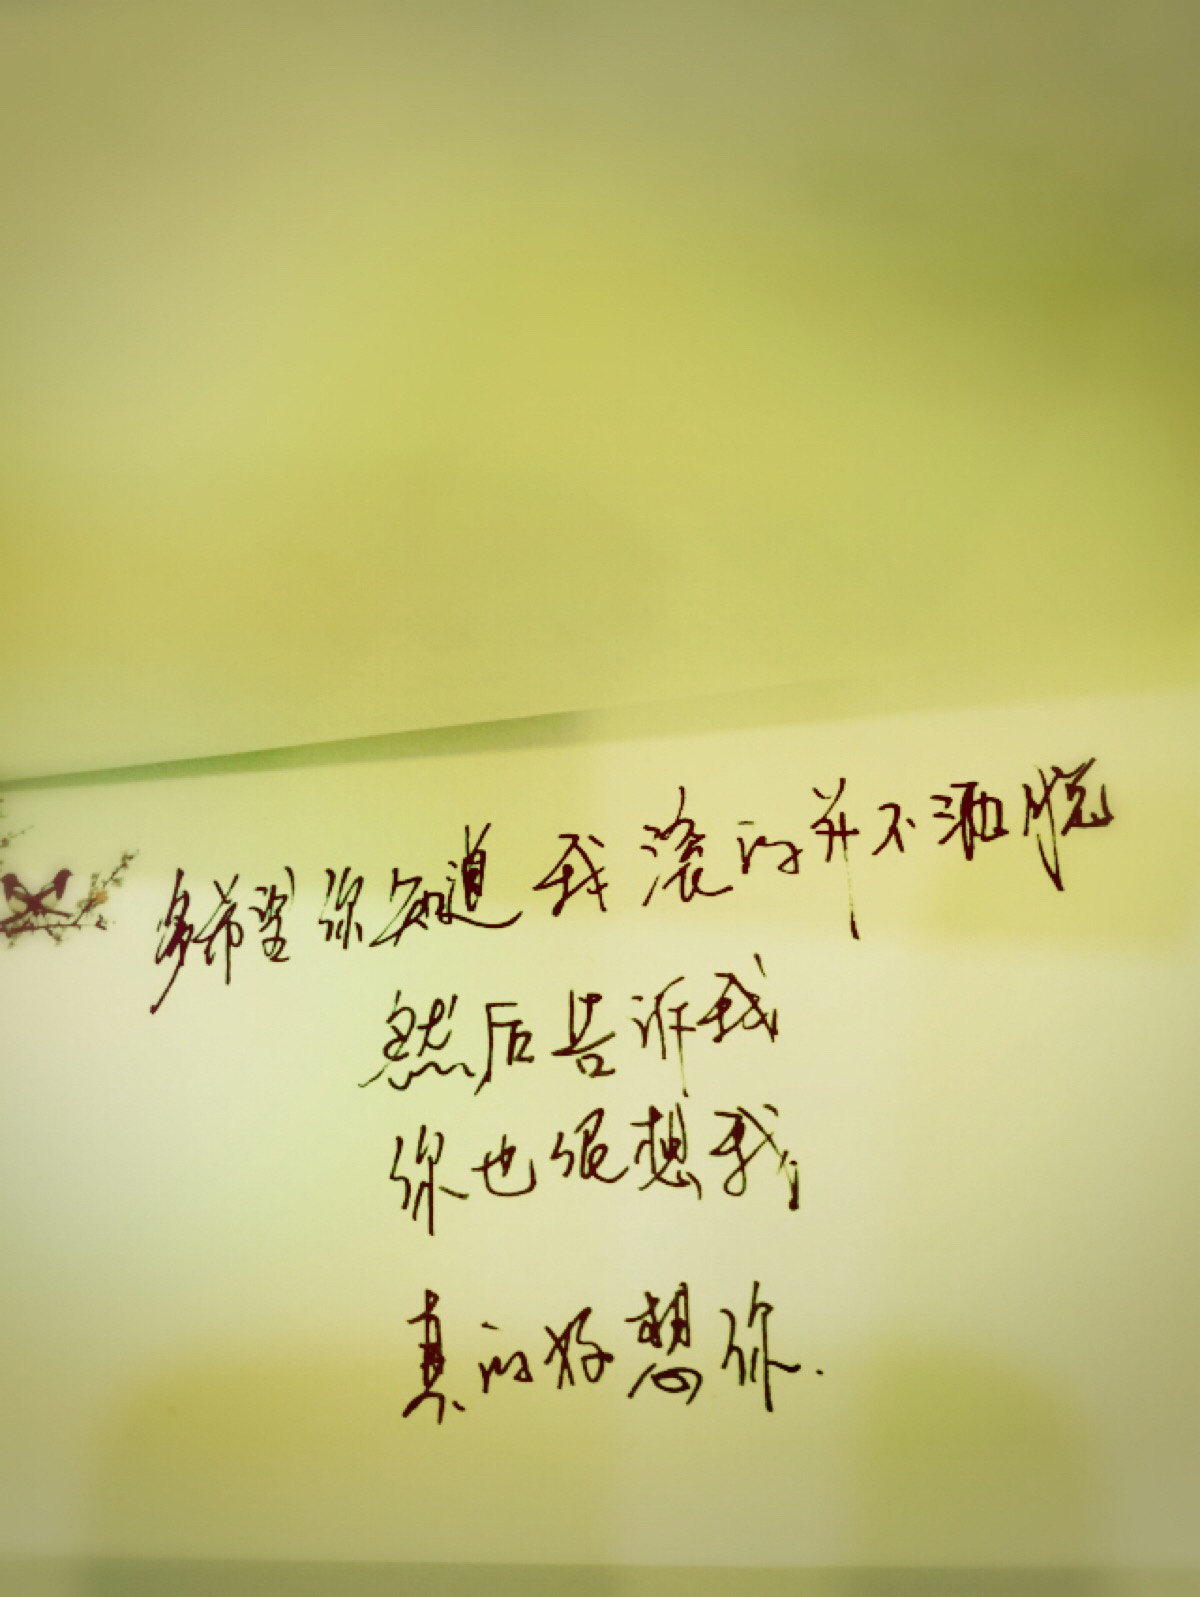 多希望你知道我滚的并不洒脱
然后告诉我
你也很想我
真的好想你.